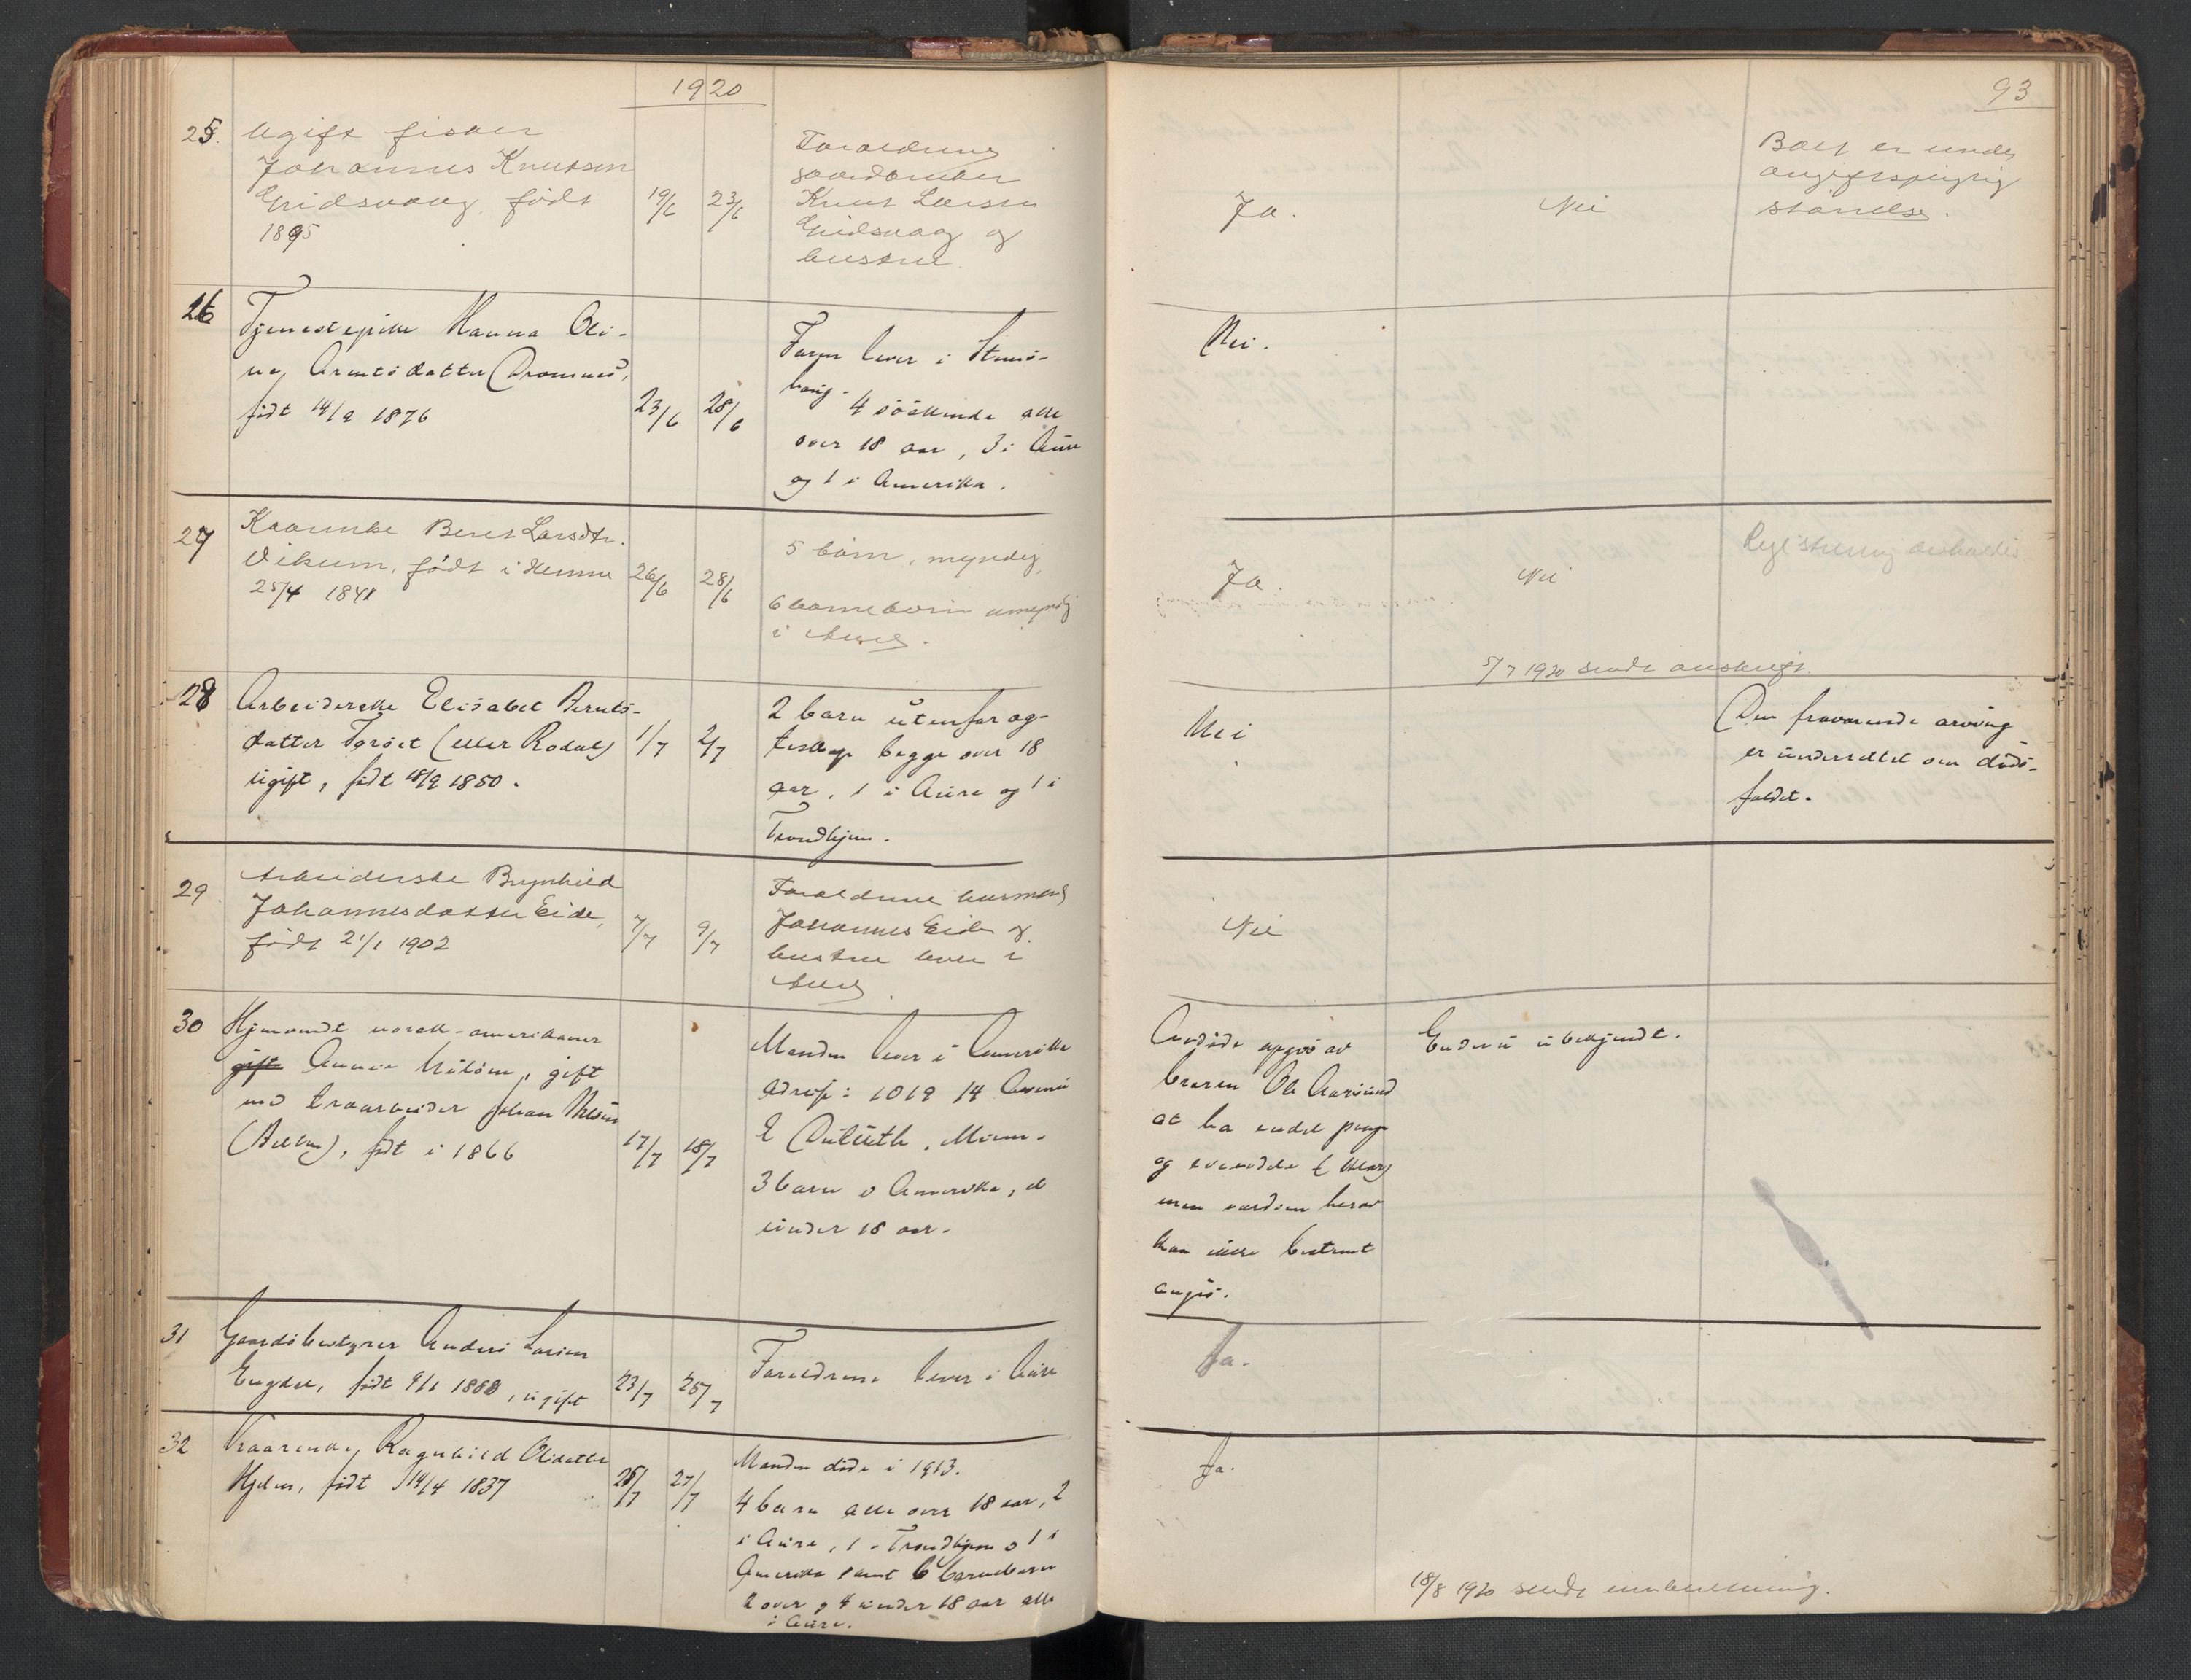 1920
93
25. Ugift fisker
Johannes Knutsen
Gridsvaag, født
1895
19/6 23/6
Forældrene
gaardbruker
Knut Larsen
Gridsvaag og
hustru
Ja.
Nei
Boet er under
avgiftspligtig
størrelse.
26 Tjenestepike Hanna Oli-
ne, Arentsdatter Dromnes,
født 14/9 1876
23/6 28/6
Faren lever i Stems-
haug.
4 söskende alle
over 18 aar, 3 i Aure
og 1 i Amerika.
Nei.
27 Kaarenke Beret Larsdtr.
Vikum, født i Hemne
25/4 1841
26/6 28/6
5 børn, myndig,
6 barnebørn umyndig
i Aure.
Ja.
Nei
Registrering avholdes
5/7 1920 sendt avskrift.
28 Arbeiderske Elisabet Bernts-
datter Torset (eller Rodal)
ugift, født 18/9 1850.
1/7 2/7
2 barn utenfor eg-
teskap begge over 18
aar, 1 i Aure og 1 i
Trondhjem.
Nei
Den fraværende arving
er underrettet om döds-
faldet.
29 Arbeiderske Brynhild
Johannesdatter Eide,
født 21/1 1902
7/7 9/7
Forældrene husmand
Johannes Eide og
hustru lever i
Aure
Nei
30 Hjemvendt norsk-amerikaner
gift Annie Nilsen, gift
med traarbeider Johan Nilsen
, født i 1866
17/7 18/7
Manden lever i Amerika
adresse: 1019 14 Avenue
E Duluth, Minn.
3 barn i Amerika, et
under 18 aar.
Avdöde opgis av
broren Ole Aarsund
at ha endel penge
og eiendele
men værdien herav
kan ikke bestemt
angis.
Endnu ubekjendt.
31 Gaardsbestyrer Anders Larsen
Engdal, født 9/1 1888, ugift
23/7 25/7
Forældrene lever i Aure
Ja.
32 Kaarenke, Ragnhild Olsdatter
Hjelm, født 14/4 1837
25/7 27/7
Manden döde i 1913.
4 barn alle over 18 aar, 2
i Aure, 1 i Trondhjem o 1 i
Amerika samt 6 barnebarn
2 over og 4 under 18 aar alle
i Aure.
Ja.
18/8 1920 sendt innberetning.